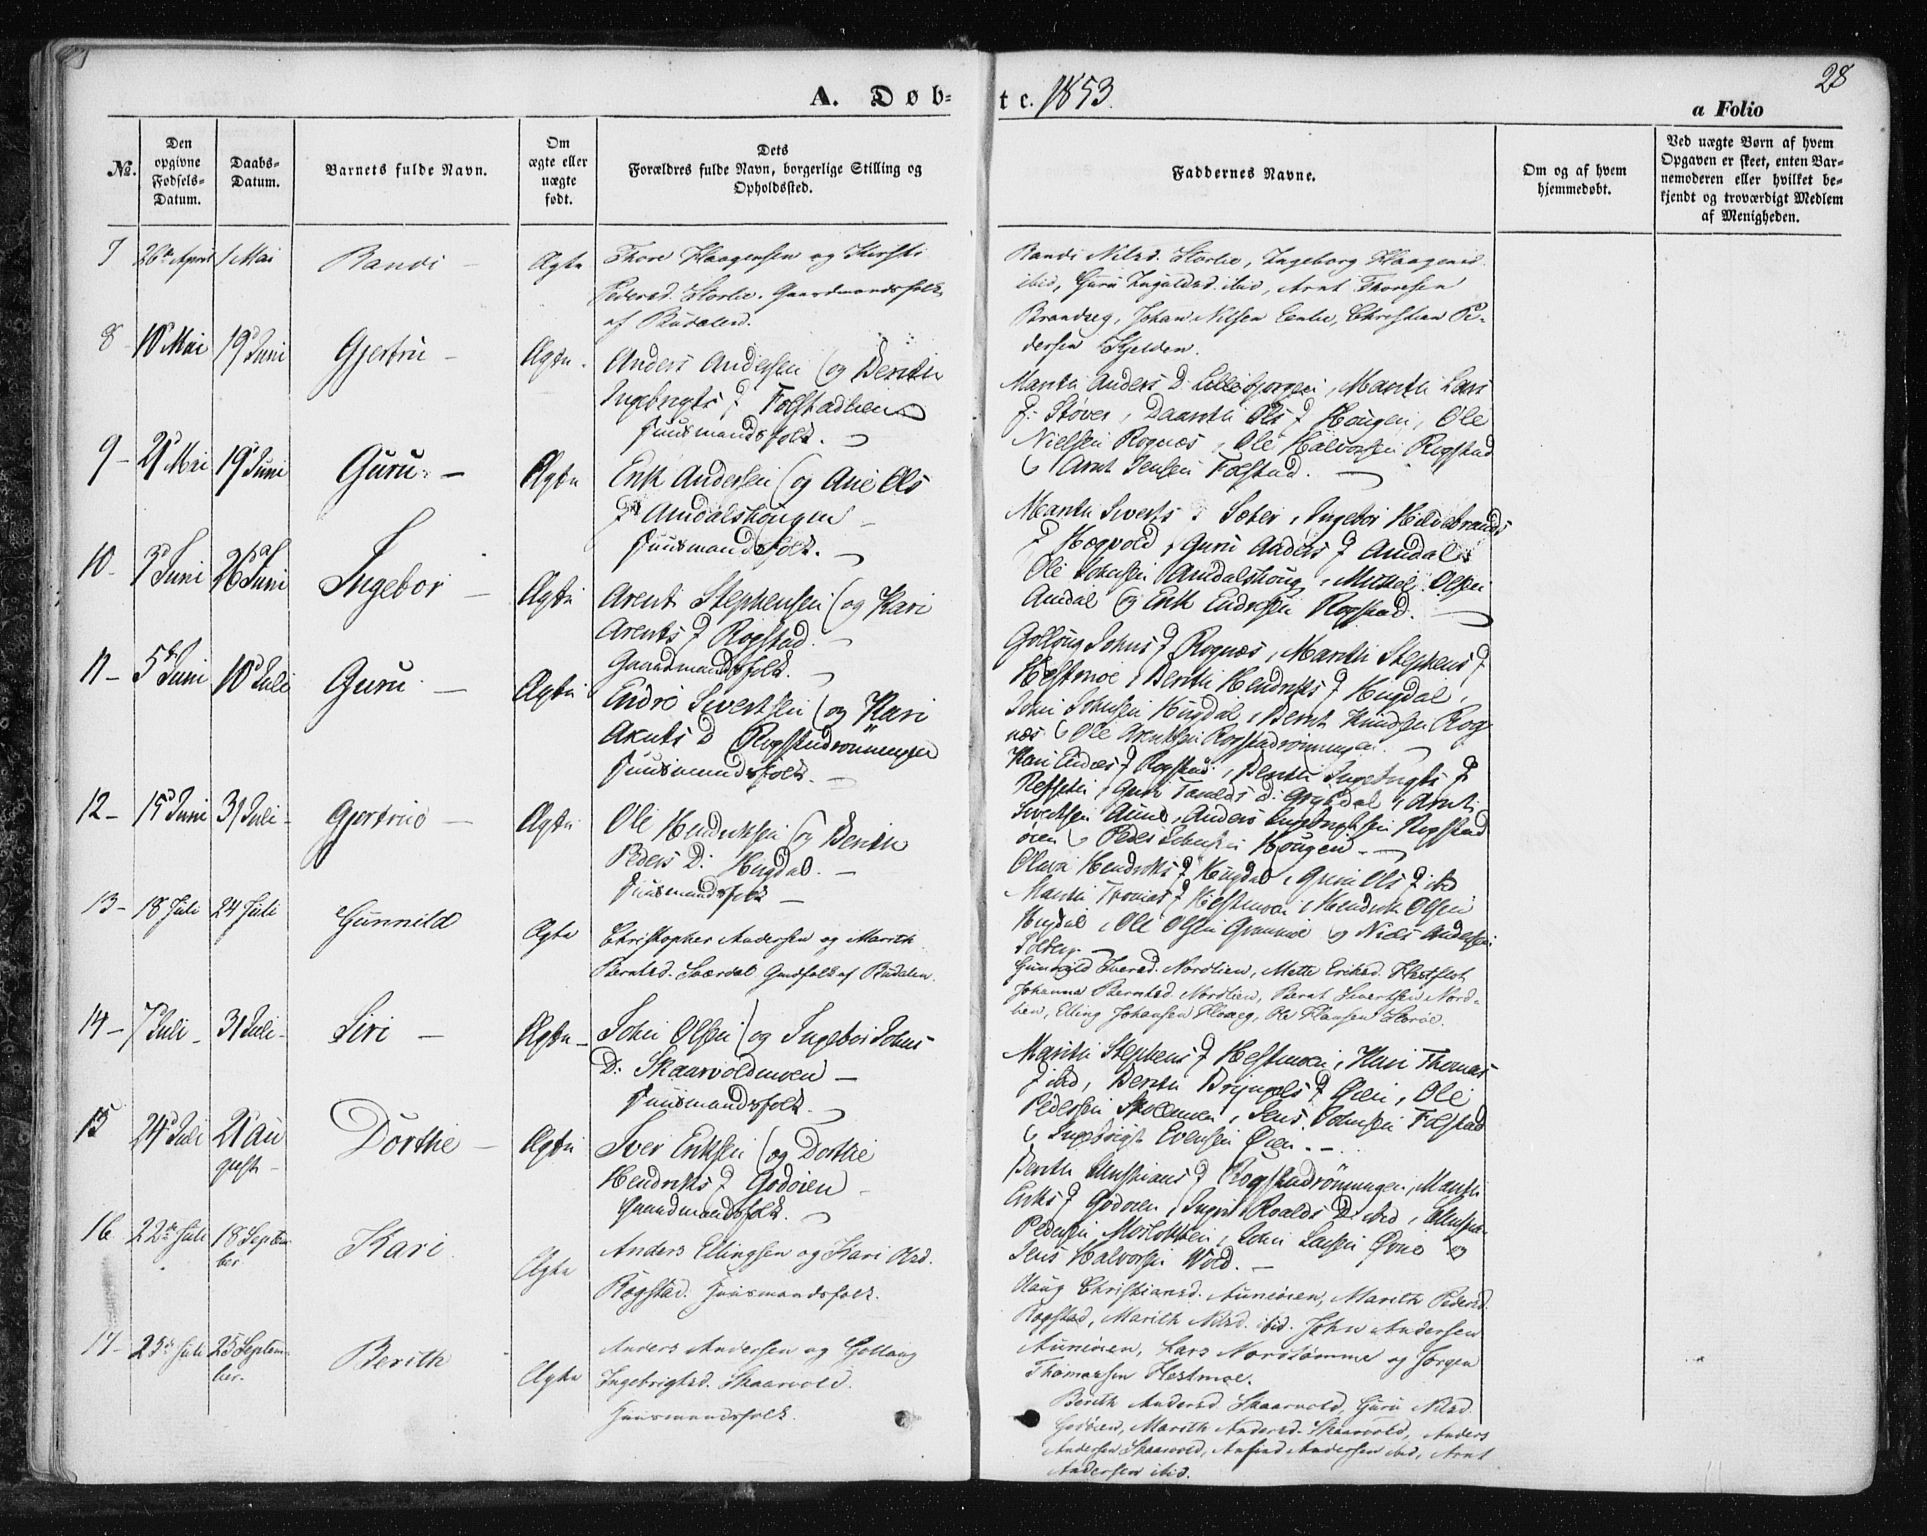 28
A. Døb-
te. 1853.
a Folio
No.
Den
opgivne
Fødsels-
Datum.
Daabs-
Datum.
Barnets fulde Navn.
Om
ægte eller
uægte
født.
Dets
Forældres fulde Navn, borgerlige Stilling og
Opholdssted.
Faddernes Navne.
Om og af hvem
hjemmedøbt.
Ved uægte Børn af hvem
Opgaven er skeet, enten Bar-
nemoderen eller hvilket be-
kjendt og troværdigt Medlem
af Menigheden.
7 26de April 1 Mai Randi - Ægte Thore Haagensen og Kirsti
Pedersd. Storlie. Gaardmandsfolk
af Budalen.
Randi Nilsd. Storlie, Ingeborg Haagensd.
ibid, Guru Ingaldsd. ibid, Arnt Thoresen
Brandeg, Johan Nilsen Enlie, Christian Pe-
dersen Kjelden.
8 10 Mai 19 Juni Gjertru - Ægte. Anders Andersen (og Berith
Ingebrigts D. Folstadlien
Huusmandsfolk.
Marith Anders D. Lillebjørgen, Marith Lars
D. Støver, Daarthe Ols D Hougen, Ole
Nielsen Rognæs, Ole Halvorsen Rogstad
(o Arnt Jensen Folstad.
9 - 21 Mai 19 Juni Guru - Ægte Erik Andersen (og Ane Ols
D Amdalshougen
Huusmandsfolk.
Marith Siverts D Sæter, Ingebor Hildebrands
D Hægvold, Guru Anders D Amdal
Ole Johnsen Amdalshoug, Mikkel Olsen
Amdal (og Erik Endresen Rogstad.
10 - 3 Juni 26 Juni Ingebor - Ægte Arent Stephensen (og Kari
Arents D Rogstad.
Gaardmandsfolk.
Golloug Johns D Rognæs, Marith Stephens D
Hestmoe, Berith Hendriks D Hugdal,
John Johnsen Hugdal, Bernt Knudsen Rog
næs (o Ole Arentsen Rogstadrønningen.
11 - 5 Juni 10 Juli Guru - Ægte Endre Sivertsen (og Kari
Arents D Rogstadrønningen
Huusmandsfolk.
Kari Endres D Rogstad, Berith Ingebrigts D
Sivertsen Aune, Anders Ingebrigtsen Rogstad
øien (o Peder Johnsen Hougen.
12 - 15 Juni 31 Juli - Gjertrud - Ægte Ole Hendriksen (og Berith
Peders D: Hugdal. -
Huusmandsfolk -
Hendriks D Hugdal, Guru Ols D ibid
Marith Thomas D Hestmoen, Hendrik Olsen
Hugdal, Ole Olsen Gramme og Niels Andersen
Solberg
13 - 18 Juli 24 Juli Gunnild Ægte Christopher Andersen og Marith
Berntsd. Sværdal Gmdfolk af Budalen.
Gunnild Iversd. Nordlien, Mette Eriksd.
Johanna Berntsd. Nordlien, Bernt Sivertsen Nord-
lien, Elling Johansen, Ole Hansen Storøe.
14 - 7 Juli - 31 Juli - Siri - Ægte - John Olsen (og Ingebor Johns
D: Skaarvoldmoen -
Huusmandsfolk.
Marith Stephens D Hestmoen, Kari Thomas
D ibid, Berith Brynjels D Øien, Ole
Pedersen, Jens Johnsen Folstad
(o Ingebrigt Evensen Øien. -
15 24 Juli 21 Au
gust - Dorthe - Ægte Iver Eriksen (og Dorthe
Hendriks D Godøien -
Gaardmandsfolk.
Berith Christians D Rogstadrønningen, Marith
Eriks D Godøien, Ingri Roalds D ibid,
Pedersen, John Larsen Øvrie og
Jens Halvorsen Wold. -
16 22de Juli 18 Septem
ber Kari Ægte Anders Ellingsen og Kari Olsd.
Rogstad. Huusmandsfolk.
Haug Christiansd. Auneøien, Marith Pedersd.
Rogstad, Marith Nilsd. ibid. John Andersen
Auneøien, Lars Nordtømme og Jørgen
Thomassen Hestmoe.
17 - 23de Juli 25 Septem-
ber. Berith Ægte Anders Andersen og Gollaug
Ingebrigtsd. Skaarvold.
Huusmandsfolk.
Berith Andersd Skaarvold, Guru Nilsd
Godøien, Marith Andersd. Skaarvold, Anders
Andersen Skaarvold, Anfind Andersen ibid, Arnt
Andersen ibid.